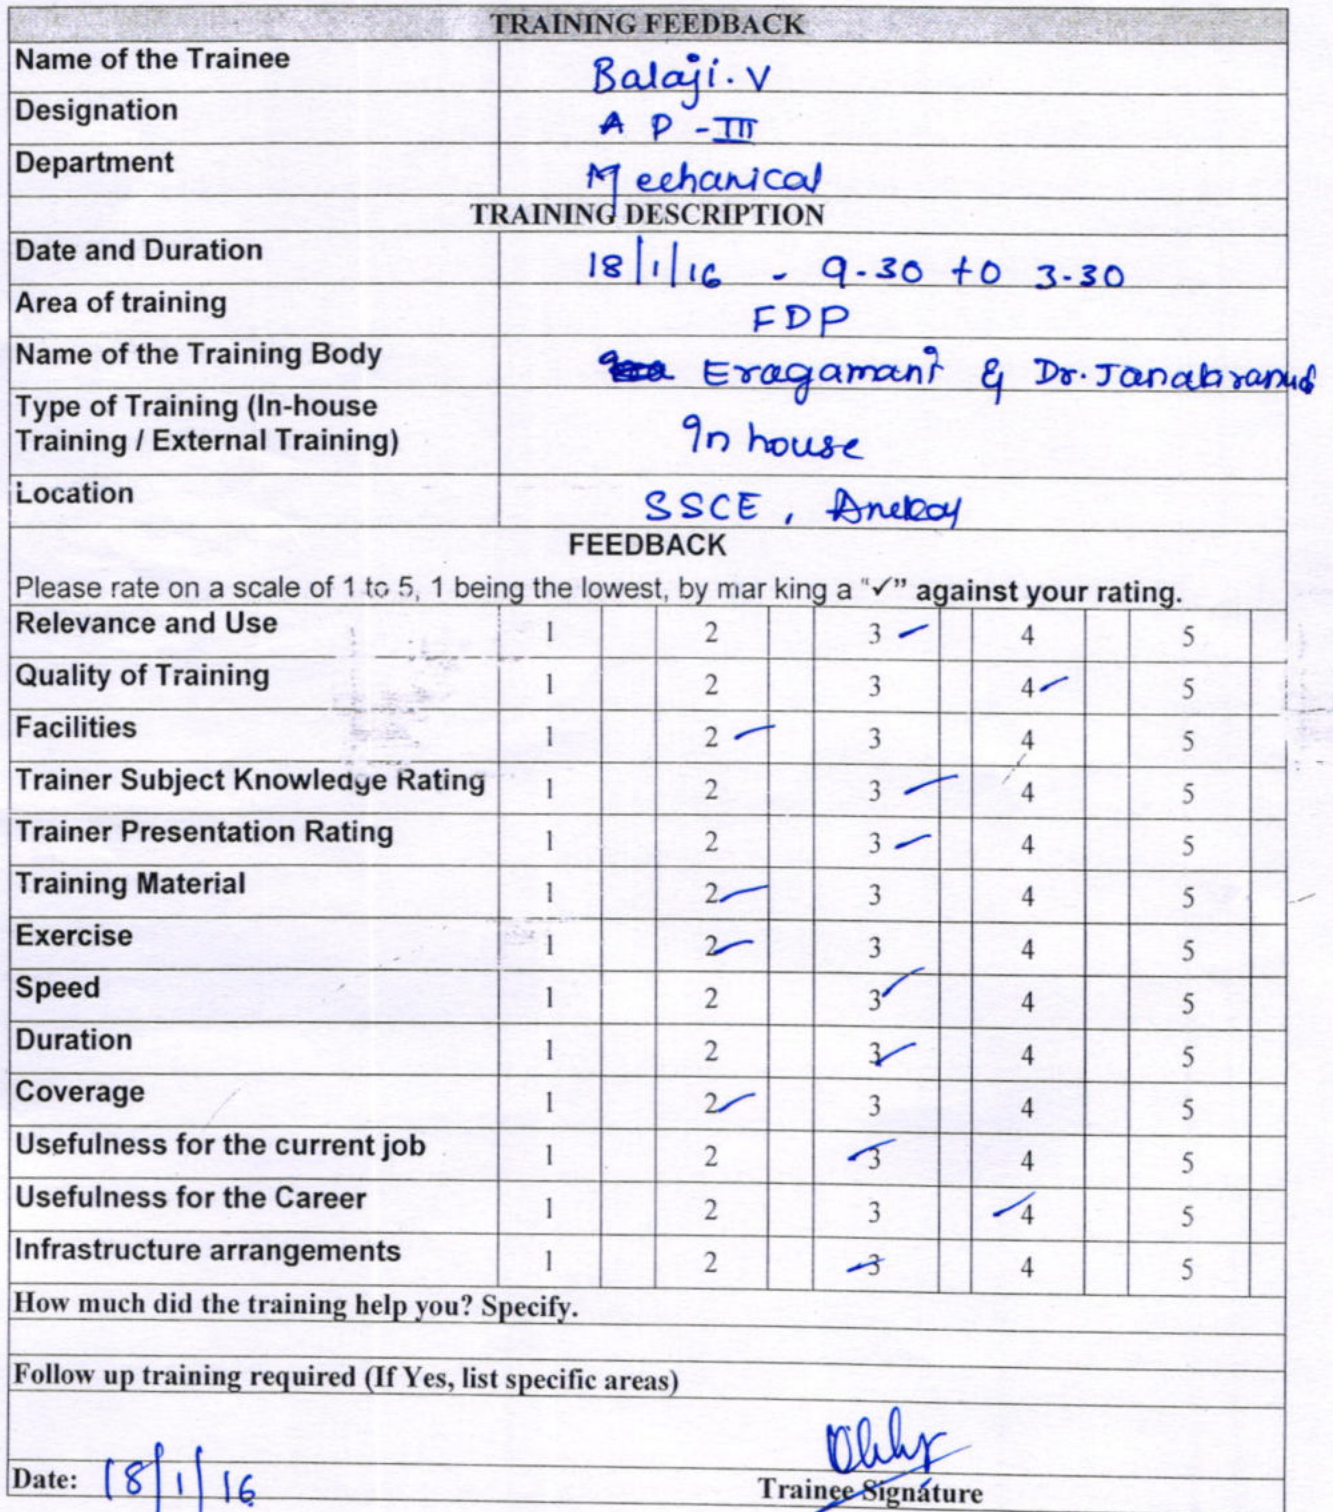 TRAINING FEEDBACK
Name of the Trainee Balaji. V
Designation A P - III
Department Mechanical
TRAINING DESCRIPTION
Date and Duration 18/1/16 - 9.30 to 3.30
Area of training FDP
Name of the Training Body Eragamani & Dr.
Type of Training (In-house
Training / External Training) In house
Location SSCE,
FEEDBACK
Please rate on a scale of 1 to 5, 1 being the lowest, by mar king a "✓" against your rating.
Relevance and Use 1 2 3 ✓ 4 5
Quality of Training 1 2 3 4 ✓ 5
Facilities 1 2 ✓ 3 4 5
Trainer Subject Knowledge Rating 1 2 3 ✓ 4 5
Trainer Presentation Rating 1 2 3 ✓ 4 5
Training Material 1 2 ✓ 3 4 5
Exercise 1 2 ✓ 3 4 5
Speed 1 2 3 ✓ 4 5
Duration 1 2 3 ✓ 4 5
Coverage 1 2 ✓ 3 4 5
Usefulness for the current job 1 2 3 ✓ 4 5
Usefulness for the Career 1 2 3 4 ✓ 5
Infrastructure arrangements 1 2 3 ✓ 4 5
How much did the training help you? Specify.
Follow up training required (If Yes, list specific areas)
Date: 18/1/16
Trainee Signature